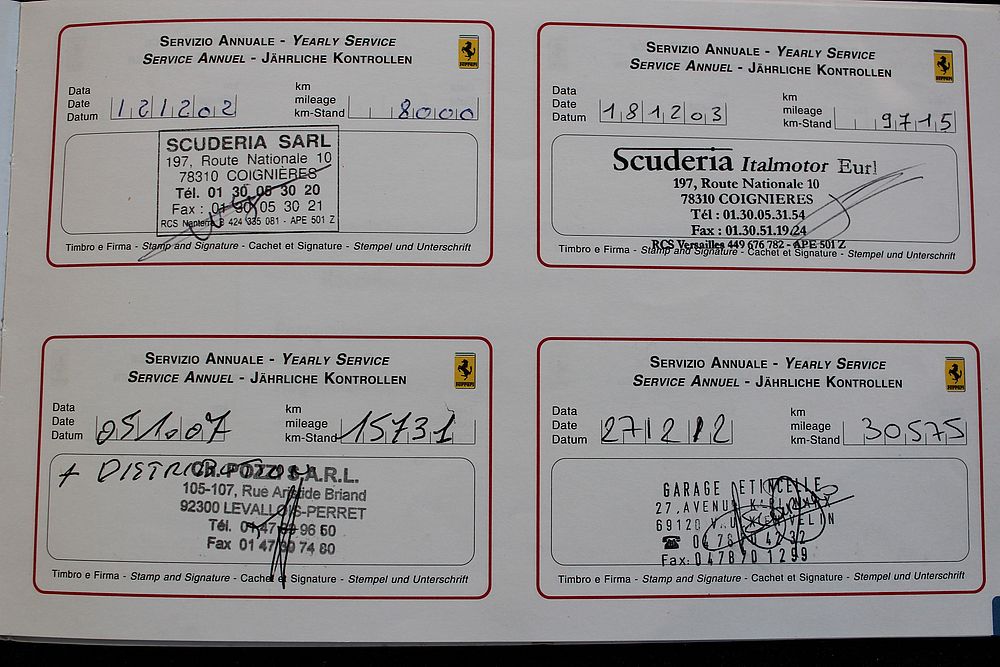 Servizio Annuale - Yearly Service
Service Annuel - Jährliche Kontrollen
Ferrari
Data
Date
Datum
121202
km
mileage
km-Stand
8000
SCUDERIA SARL
197, Route Nationale 10
78310 COIGNIÈRES
Tél. 01 30 05 30 20
Fax : 01 30 05 30 21
RCS Nanterre B 424 335 081 - APE 501 Z
Timbro e Firma - Stamp and Signature - Cachet et Signature - Stempel und Unterschrift
Servizio Annuale - Yearly Service
Service Annuel - Jährliche Kontrollen
Ferrari
Data
Date
Datum
181203
km
mileage
km-Stand
9715
Scuderia Italmotor Eurl
197, Route Nationale 10
78310 COIGNIERES
Tél : 01.30.05.31.54
Fax : 01.30.51.19.24
RCS Versailles 449 676 782 - APE 501 Z
Timbro e Firma - Stamp and Signature - Cachet et Signature - Stempel und Unterschrift
Servizio Annuale - Yearly Service
Service Annuel - Jährliche Kontrollen
Ferrari
Data
Date
Datum
051007
km
mileage
km-Stand
15731
+ DISTRIBUTION
CH. POZZI S.A.R.L.
105-107, Rue Aristide Briand
92300 LEVALLOIS-PERRET
Tél. 01 47 39 96 50
Fax 01 47 39 74 80
Timbro e Firma - Stamp and Signature - Cachet et Signature - Stempel und Unterschrift
Servizio Annuale - Yearly Service
Service Annuel - Jährliche Kontrollen
Ferrari
Data
Date
Datum
271212
km
mileage
km-Stand
30575
GARAGE ETINCELLE
27, AVENUE
69120
04 78 70 42 32
Fax: 0478701299
Timbro e Firma - Stamp and Signature - Cachet et Signature - Stempel und Unterschrift